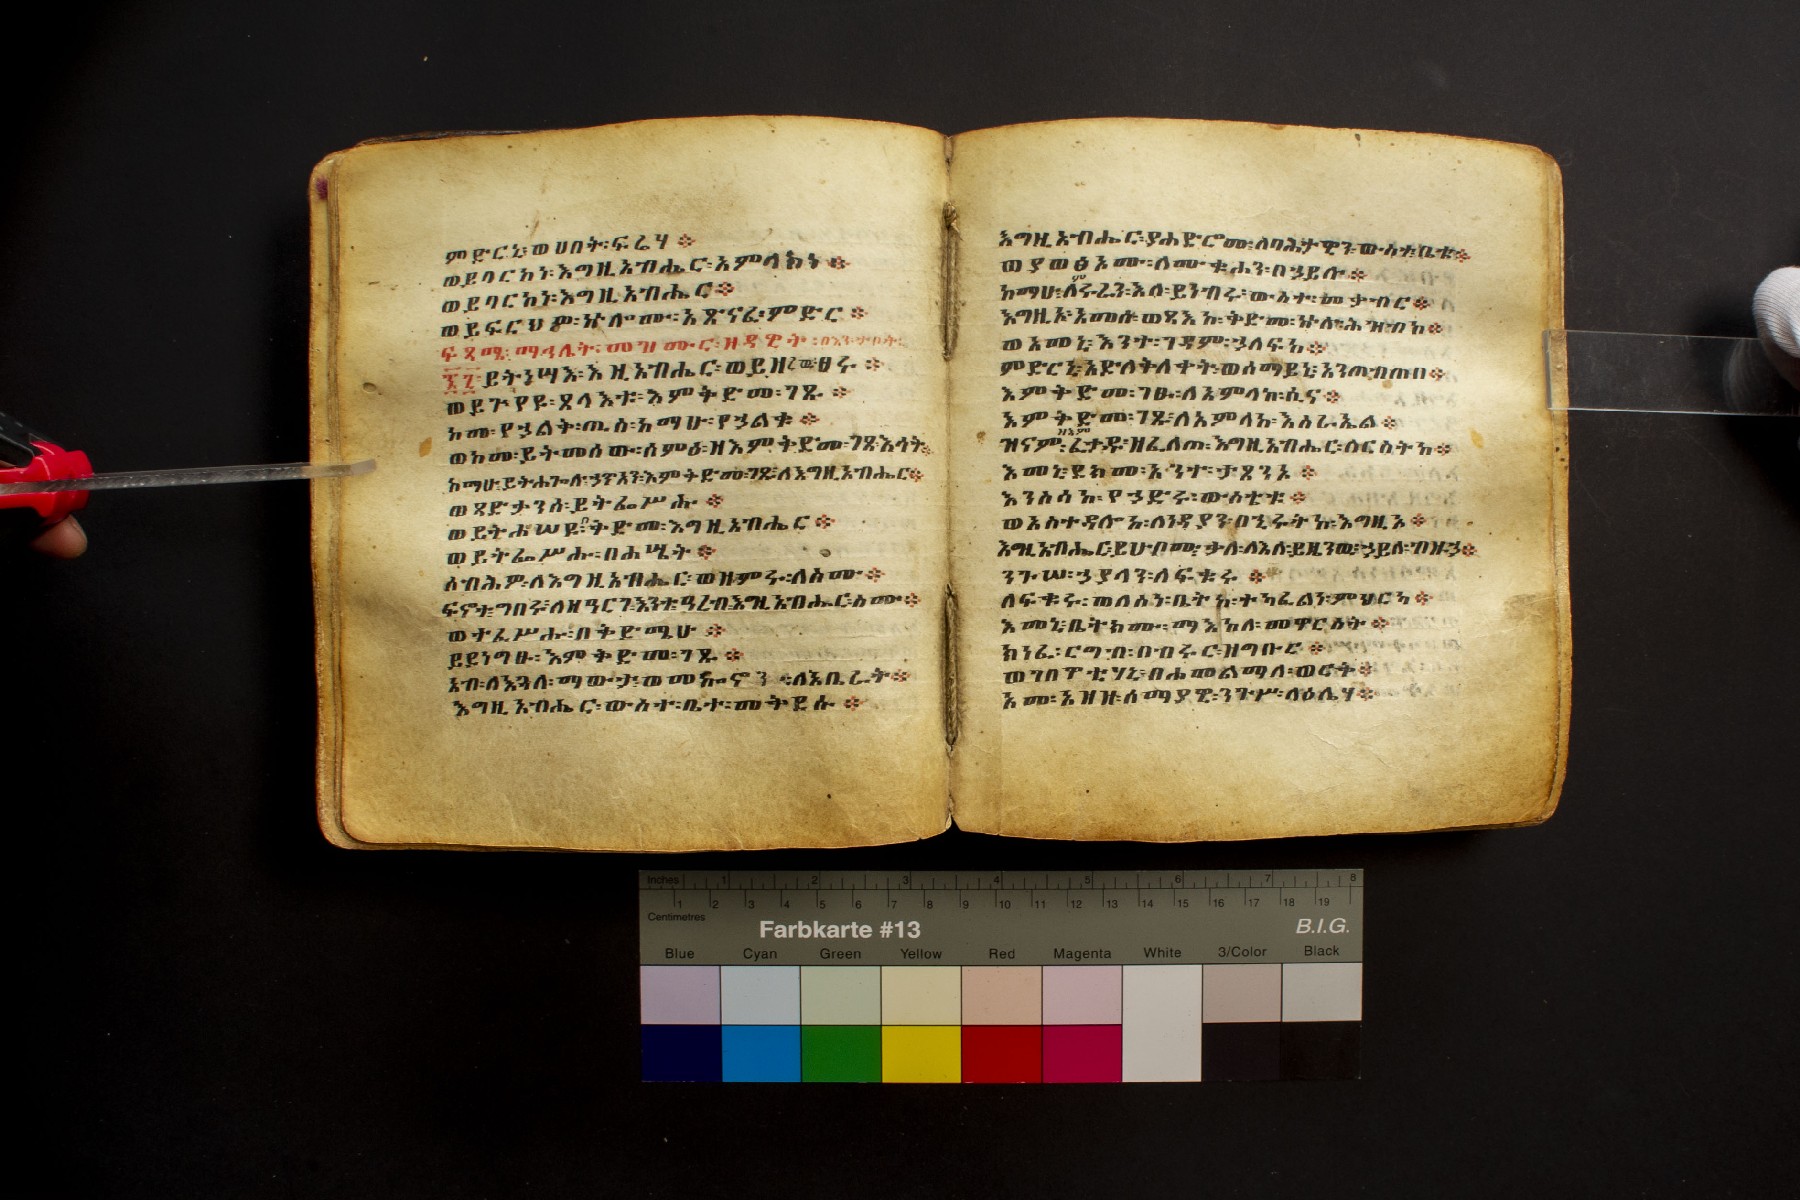 ምድርኒ፡ወሀበት፡ፍሬሃ ፨
ወይባርከነ፡እግዚአብሔር፡አምላክነ ፨
ወይባርከነ፡እግዚአብሔር፨
ወይፍርህዎ፡ኵሎሙ፡አጽናፈ፡ምድር ፨
ፍጻሜ፡ማኅሌት፡መዝሙር፡ዘዳዊት፡
፷፯፡ይትነሣእ፡እግዚአብሔር፡ወይዘረወ፡ፀሩ ፨
ወይጕየዩ፡ጸላእቱ፡እምቅድመ፡ገጹ ፨
ከመ፡የኃልቅ፡ጢስ፡ከማሁ፡የኃልቁ ፨
ወከመ፡ይትመሰው፡ሰምዕ፡ዘእምቅድመ፡ገጸ፡እሳት፨
ከማሁ፡ይትሐጐሉ፡ኃጥአን፡እምቅድመ፡ገጹ፡ለእግዚአብሔር፨
ወጻድታንሰ፡ይትፌሥሑ ፨
ወይትሐሠዩ፡በቅድመ፡እግዚአብሔር ፨
ወይትፌሥሑ፡በሐሤት ፨
ሰብሕዎ፡ለእግዚአብሔር፡ወዘምሩ፡ለስሙ፨
ፍኖተ፡ግበሩ፡ለዘዓርገ፡እንተ፡ዓረብ፡እግዚአብሔር፡ስሙ፨
ወተፈሥሑ፡በቅድሜሁ ፨
ይደነግፁ፡እምቅድመ፡ገጹ ፨
አቡ፡ለእጓለ፡ማውታ፡ወመኰንን፡ለእቤራት፨
እግዚአብሔር፡ውስተ፡ቤተ፡መቅደሱ ፨
እግዚአብሔር፡ያሐድሮሙ፡ለባሕታዊን፡ውስተ፡ቤቱ፨
ወያወፅኦሙ፡ለሙቁሐን፡በኃይሉ፨
ከማሁ፡ለምሩራን፡እለ፡ይነብሩ፡ውስተ፡መቃብር፨
እግዚኦ፡አመ፡ወፃእከ፡ቅድመ፡ኵሉ፡ሕዝብከ፨
ወአመኒ፡እንተ፡ገዳም፡ኃለፍከ፨
ምድርኒ፡አድለቅለቀት፡ወሰማይኒ፡አንጠብጠበ፨
እምቅድመ፡ገፁ፡ለአምላከ፡ሲና፨
እምቅድመ፡ገጹ፡ለአምላከ፡እስራኤል፨
ዝናም፡ዘእም፡ፈታዱ፡ዘፈለጠ፡እግዚአብሔር፡ስርስትከ፨
እመኒ፡ደክመ፡አንተ፡ታጸንኦ ፨
እንስሳከ፡የኃድሩ፡ውስቴቱ ፨
ወአስተዳሎከ፡ለነዳያን፡በኂሩትከ፡እግዚኦ፨
እግዚአብሔር፡ይሁቦሙ፡ቃለ፡ለእለ፡ይዜንዉ፡ኃይለ፡ብዙኃ፨
ንጉሠ፡ኃያላን፡ለፍቁሩ ፨
ለፍቁሩ፡ወለስነ፡ቤትከ፡ተካፈልነ፡ምህርካ፨
እመኒ፡ቤትክሙ፡ማእከለ፡መዋርስት፨
ክነፈ፡ርግብ፡በብሩር፡ዝግቡር ፨
ወገበዋቲሃኒ፡በሐመልማለ፡ወርቅ፨
አመ፡አዘዘ፡ሰማያዊ፡ንጉሥ፡ላዕሌሃ፨
Inches 1 2 3 4 5 6 7 8
Centimetres 1 2 3 4 5 6 7 8 9 10 11 12 13 14 15 16 17 18 19
Farbkarte #13 B.I.G.
Blue Cyan Green Yellow Red Magenta White 3/Color Black